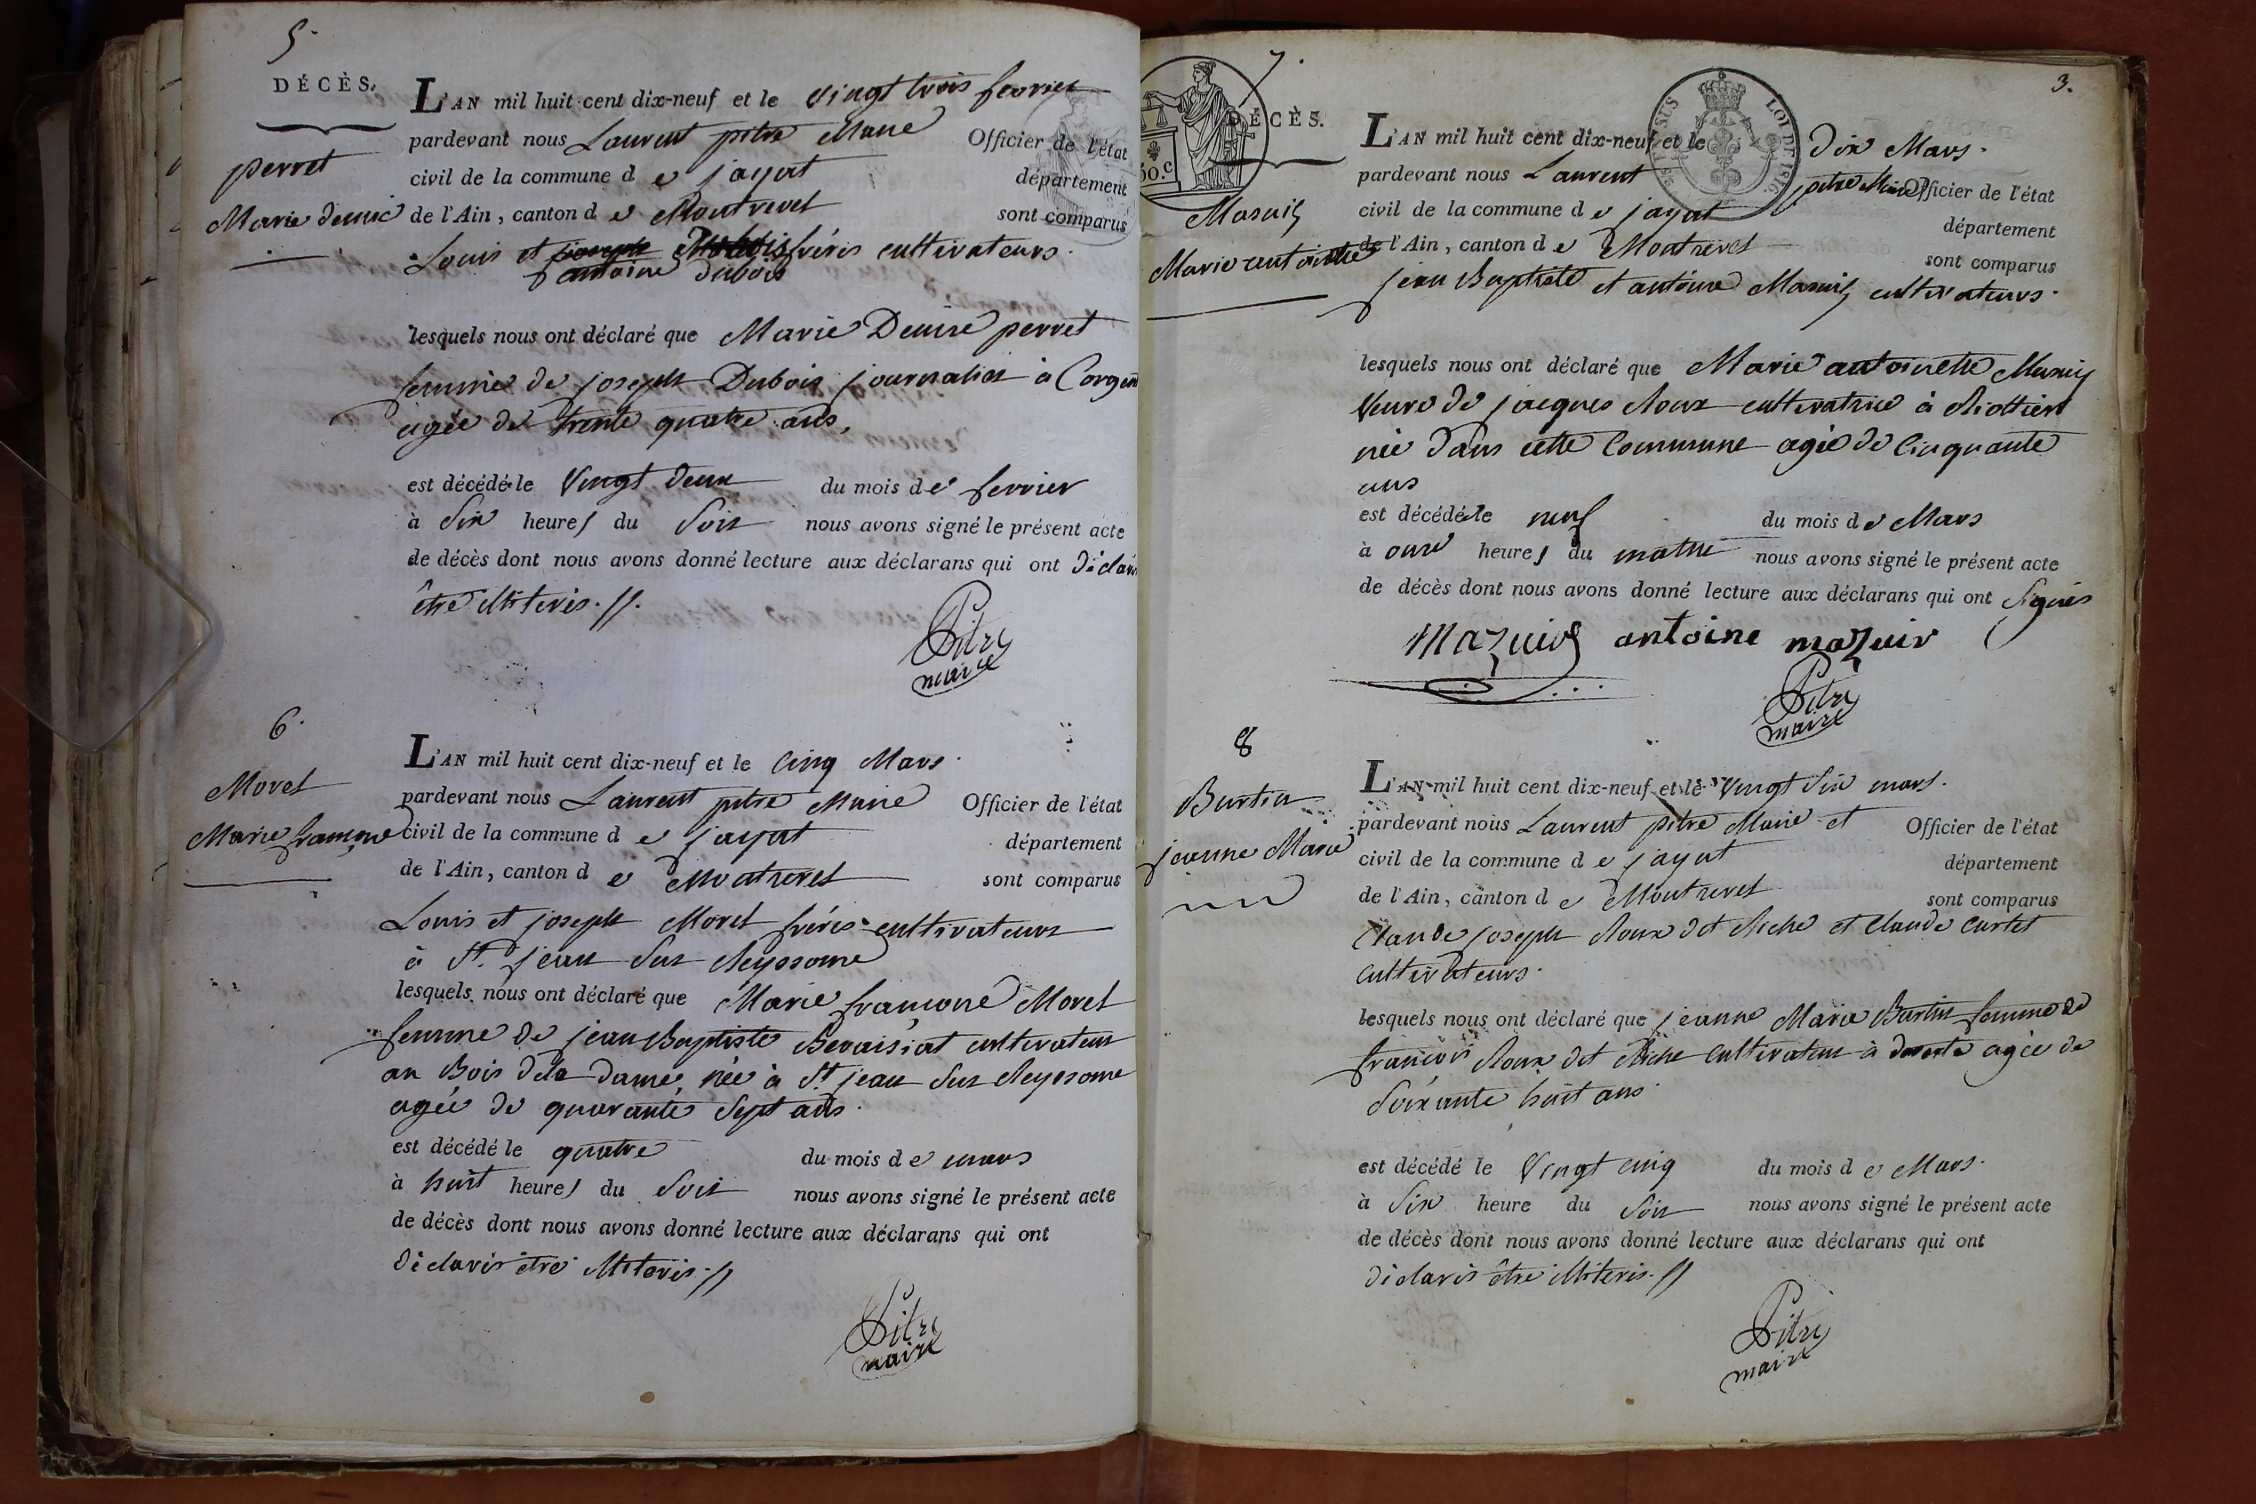 5.
DÉCÈS.
perret
Marie denise
L'AN mil huit cent dix-neuf et le vingt trois fevrier
pardevant nous Laurent pitre Maire Officier de l'état
civil de la commune de jayat département
de l'Ain, canton de Montrevel sont comparus
Louis et antoine dubois fréres cultivateurs.
lesquels nous ont déclaré que Marie Denise perret
femme de joseph Dubois journalier à
agée de trente quatre ans,
est décédée le Vingt deux du mois de fevrier
à Six heures du Soir nous avons signé le présent acte
de décès dont nous avons donné lecture aux déclarans qui ont
être illiterés.
Pitre
maire
6.
Morel
Marie françoise
L'AN mil huit cent dix-neuf et le Cinq Mars.
pardevant nous Laurent pitre Maire Officier de l'état
civil de la commune de jayat département
de l'Ain, canton de Montrevel sont comparus
Louis et joseph Morel fréres cultivateurs
à St. jean Sur Reyssouze
lesquels nous ont déclaré que Marie françoise Morel
femme de jean Baptiste cultivateur
au Bois dela dame, née à St jean Sur Reyssouze
agée de quarante Sept ans.
est décédé le quatre du mois de mars
à huit heures du Soir nous avons signé le présent acte
de décès dont nous avons donné lecture aux déclarans qui ont
déclarés être illiterés.
Pitre
maire
3.
7.
DÉCÈS.
Masuir
Marie antoinette
L'AN mil huit cent dix-neuf et le Dix Mars.
pardevant nous Laurent pitre Maire Officier de l'état
civil de la commune de jayat département
de l'Ain, canton de Montrevel sont comparus
jean Baptiste et antoine Masuir cultivateurs.
lesquels nous ont déclaré que Marie antoinette Masuir
Veuve de jacques Roux cultivatrice à
née dans cette Commune agée de Cinquante
ans
est décédée le neuf du mois de Mars
à onze heures du matin nous avons signé le présent acte
de décès dont nous avons donné lecture aux déclarans qui ont Signés
mazuir antoine mazuir
Pitre
maire
8
Burtin
jeanne Marie
L'AN mil huit cent dix-neuf et le Vingt Six mars.
pardevant nous Laurent pitre Maire et Officier de l'état
civil de la commune de jayat département
de l'Ain, canton de Montrevel sont comparus
Claude joseph Roux dit Riche et Claude curtet
cultivateurs.
lesquels nous ont déclaré que jeanne Marie Burtin femme de
françois Roux dit Riche cultivateur à agée de
Soixante huit ans.
est décédé le Vingt cinq du mois de Mars.
à Six heure du Soir nous avons signé le présent acte
de décès dont nous avons donné lecture aux déclarans qui ont
déclarés être illiterés.
Pitre
maire